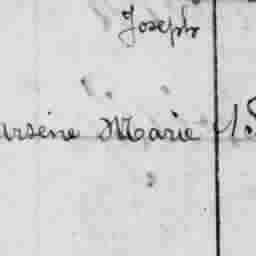 Joseph
arsène Marie 15